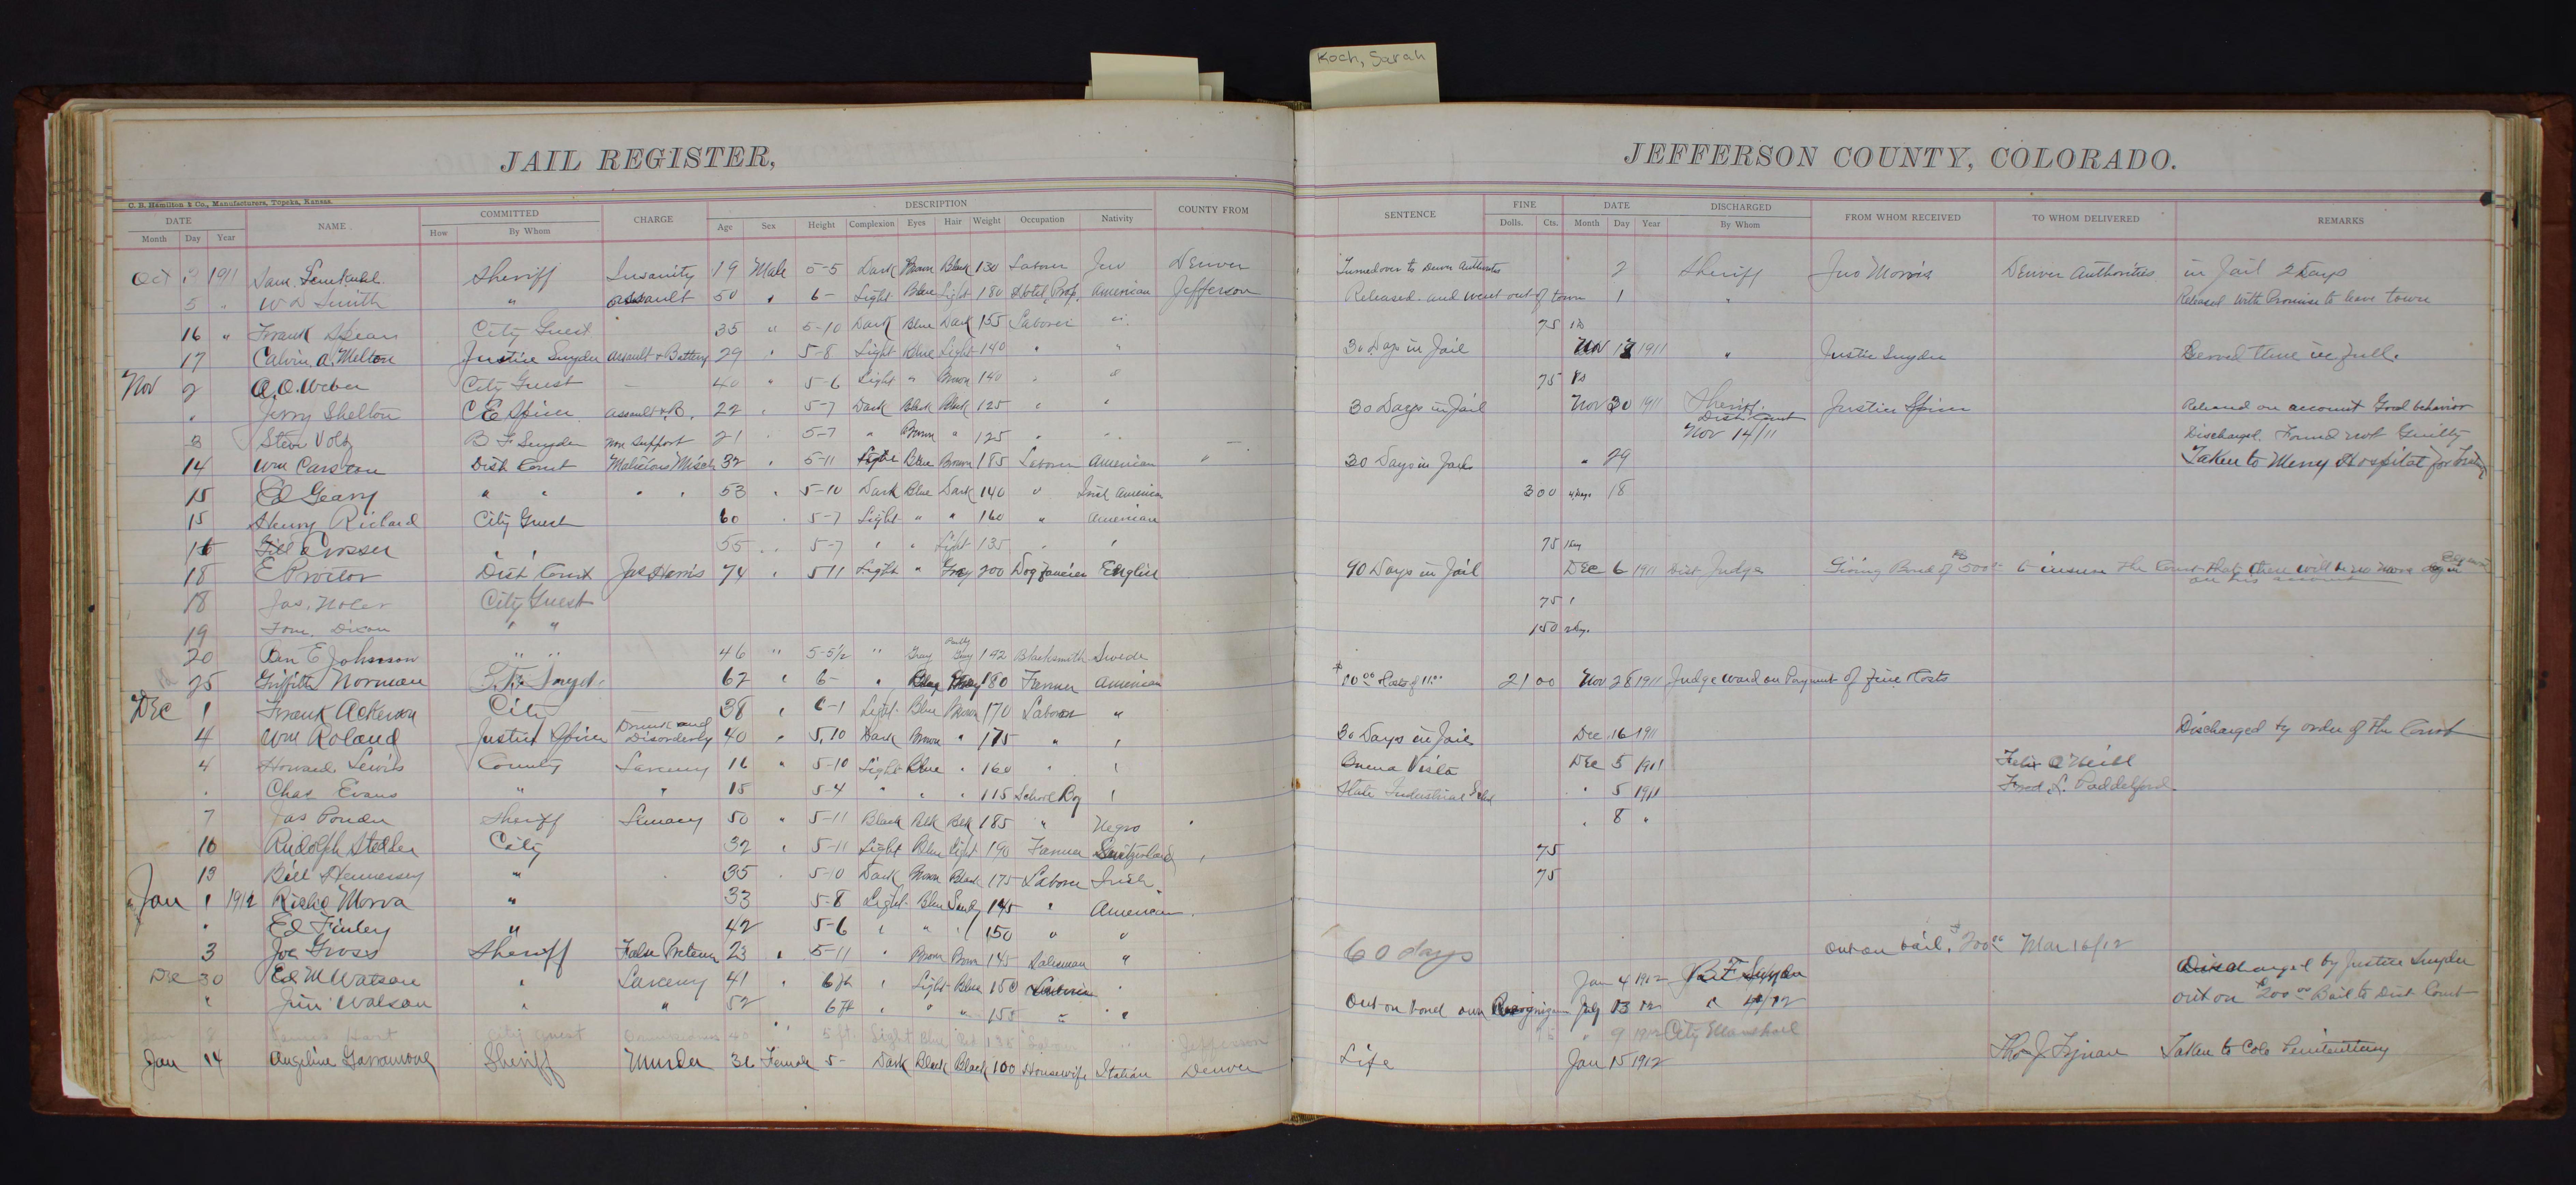 Koch, Sarah
JAIL REGISTER,
C. B. Hamilton & Co., Manufacturers, Topeka, Kansas.
DATE NAME COMMITTED CHARGE DESCRIPTION COUNTY FROM
Month Day Year How By Whom Age Sex Height Complexion Eyes Hair Weight Occupation Nativity
Oct 1911 Sam Sheriff Insanity 19 Male 5-5 Dark Brown Black 130 Laborer Jew Denver
5 " W D Smith " assault 50 " 6- Light Blue Light 180 Hotel Prop. American Jefferson
16 " Frank City Guest 35 " 5-10 Dark Blue Dark 155 Laborer "
17 Calvin A. Melton Justice Snyder assault & Battery 29 " 5-8 Light Blue Light 140 " "
Nov 2 A. O. Weber City Guest — 40 " 5-6 Light " Brown 140 " "
" Jerry Shelton C E Spicer assault & B. 22 " 5-7 Dark Black Black 125 " "
8 Steve Voltz B F Snyder non support 21 " 5-7 " Brown " 125 " "
14 Wm Carston Dist Court Malicious Misch 32 " 5-11 Light Blue Brown 185 Laborer American "
15 Ed Geary " " " " 53 " 5-10 Dark Blue Dark 140 " Irish American
15 Henry Richard City Guest 60 " 5-7 Light " " 160 " American
16 Crosser " " 55 " 5-7 " " Light 135 " "
18 E Proctor Dist Court Jas Harris 74 " 5 11 Light " Gray 200 Dog Fancier English
18 Jas. Noler City Guest
19 Tom. Dixon " "
20 Ben E Johnson " " 46 " 5-5 1/2 " Gray Partly Gray 142 Blacksmith Swede
25 Griffith Norman 62 " 6- " 180 Farmer American
Dec 1 Frank Ackerson City — 38 " 6-1 Light Blue Brown 170 Laborer "
4 Wm Roland Justice Spicer Drunk and Disorderly 40 " 5,10 Dark Brown " 175 " "
4 Howard Lewis County Larceny 16 " 5-10 Light Blue " 160 " "
" Chas Evans " " 15 5-4 " " " 115 School Boy "
7 Jas Ponder Sheriff 50 " 5-11 Black Blk Blk 185 " Negro "
10 Rudolph City 32 " 5-11 Light Blue Light 190 Farmer Switzerland "
13 Bill Hennessey " 35 " 5-10 Dark Brown Black 175 Laborer Irish
Jan 1 1912 Morva " 33 5-8 Light Blue Sandy 145 " American
" Ed Finley " 42 5-6 " " " 150 " "
3 Joe Gross Sheriff False Pretense 23 " 5-11 " Brown Brown 145 Salesman "
Dec 30 Ed M Watson " Larceny 41 " 6 ft " Light Blue 150 "
" Jim Watson " " 52 6 ft " " " 155 " "
8 James Hart City Guest 40 5 ft Light Blue Jefferson
Jan 14 Angelina Garramone Sheriff Murder 36 Female 5- Dark Black Black 100 Housewife Italian Denver
JEFFERSON COUNTY, COLORADO.
SENTENCE FINE DATE DISCHARGED FROM WHOM RECEIVED TO WHOM DELIVERED REMARKS
Dolls. Cts. Month Day Year By Whom
Turned over to Denver Authorities " 2 Sheriff Jno Morris Denver Authorities in Jail 2 Days
Released and went out of town 1 " Released with Promise to leave town
75
30 Days in Jail Nov 1911 " Justice Snyder Served time in full.
75
30 Days in Jail Nov 30 1911 Sheriff. Justice Spicer Released on account Good behavior
Dist Court
Nov 14/11 Discharged. Found not Guilty
30 Days in Jail " 29 Taken to Mercy Hospital for
300 4 days 18
75 1 day
90 Days in Jail Dec 6 1911 Dist Judge Giving Bond of 500 to insure the Court that there will be no more
on his account
75 "
150 2 days
$10.00 Costs of 11.00 21 00 Nov 28 1911 Judge Ward on Payment of Fine & Costs
Discharged by order of the Court
30 Days in Jail Dec 16 1911
Buena Vista Dec 5 1911 Felix O'Neill
State Industrial Schol " 5 1911 Fred L. Paddelford
" 8 "
75
75
60 days out on bail $200.00 Mar 16/12
Jan 4 1912 B F Snyder Discharged by Justice Snyder
Out on bond own July 13 12 " out on $200.00 Bail to Dist Court
" 9 1912 City Marshall
Life Jan 15 1912 Thos J. Tynan Taken to Colo Penitentiary